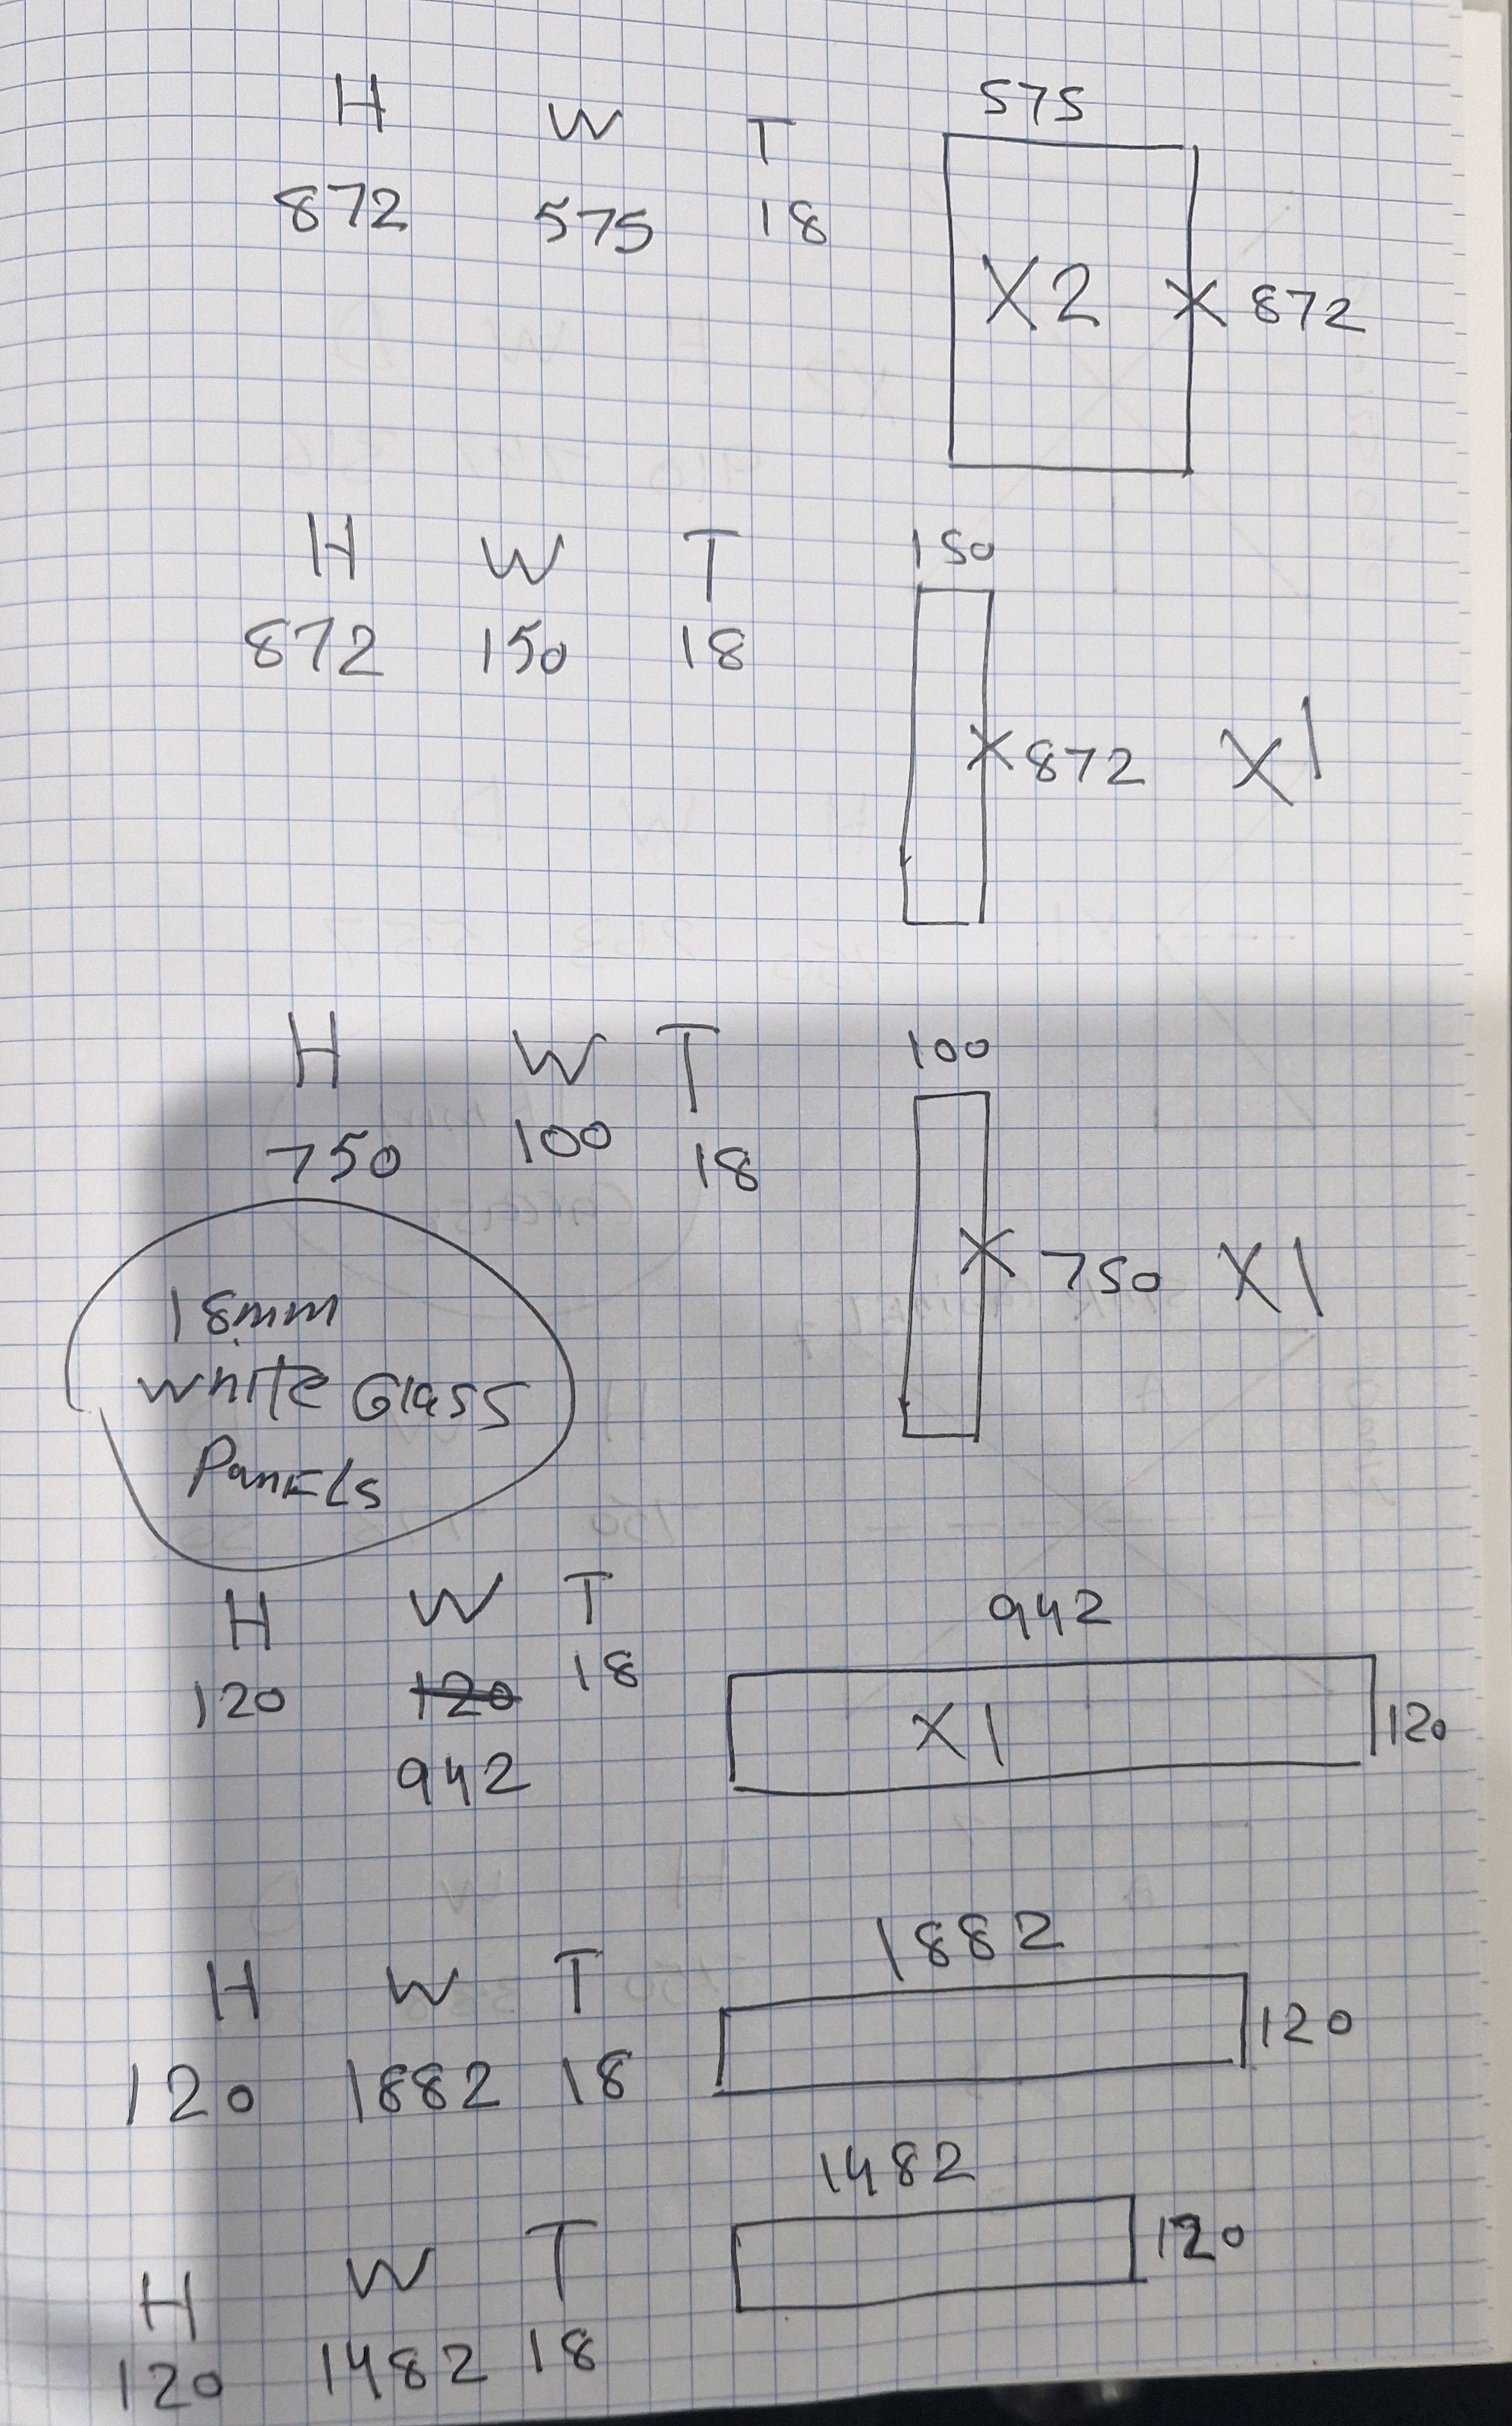 H W T 575
872 575 18 X2 X 872
H W T 150
872 150 18 X 872 X1
H W T 100
750 100 18 X 750 X1
18mm
white Glass
PanELs
H W T 942
120 120 18 X1 120
942
H W T 1882
120 1882 18 120
H W T 1482
120 1482 18 120